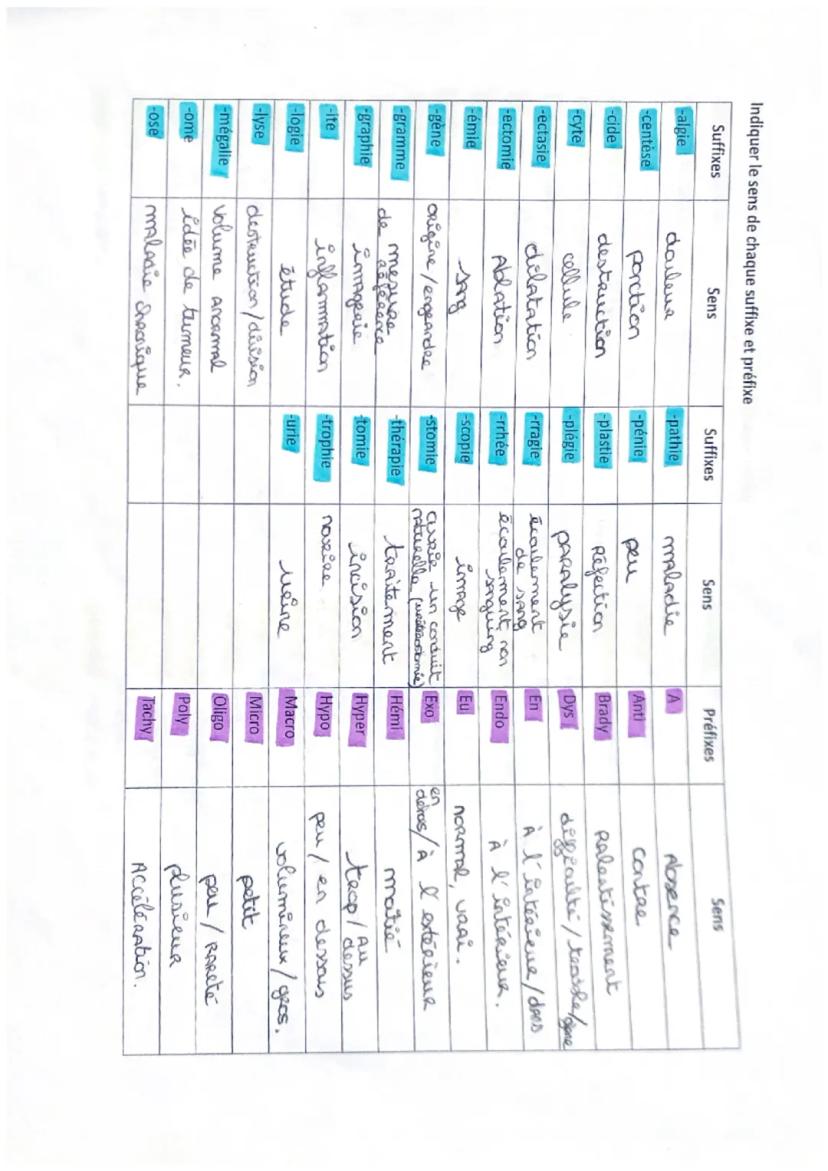 Indiquer le sens de chaque suffixe et préfixe
Suffixes Sens Suffixes Sens Préfixes Sens
-algie douleur -pathie maladie A Absence
-centèse ponction -pénie peu Anti contre
-cide destruction -plastie Réfection Brady Ralentissement
-cyte cellule -plégie paralysie Dys difficulté / trouble / gêne
-ectasie dilatation -rragie écoulement de sang En À l'intérieur / dans
-ectomie Ablation -rrhée écoulement non sanguin Endo À l'intérieur.
-émie sang -scopie image Eu normal, vrai.
-gène origine / engendrer -stomie ouvrir un conduit naturelle (urétérostomie) Exo en dehors / À l'extérieur
-gramme mesure de référence -thérapie traitement Hémi moitié
-graphie imagerie -tomie incision Hyper trop / Au dessus
-ite inflammation -trophie nourrir Hypo peu / en dessous
-logie étude -urie urine Macro volumineux / gros.
-lyse destruction / division Micro petit
-mégalie volume anormal Oligo peu / Rareté
-ome idée de tumeur. Poly plusieur
-ose maladie chronique Tachy Accélération.